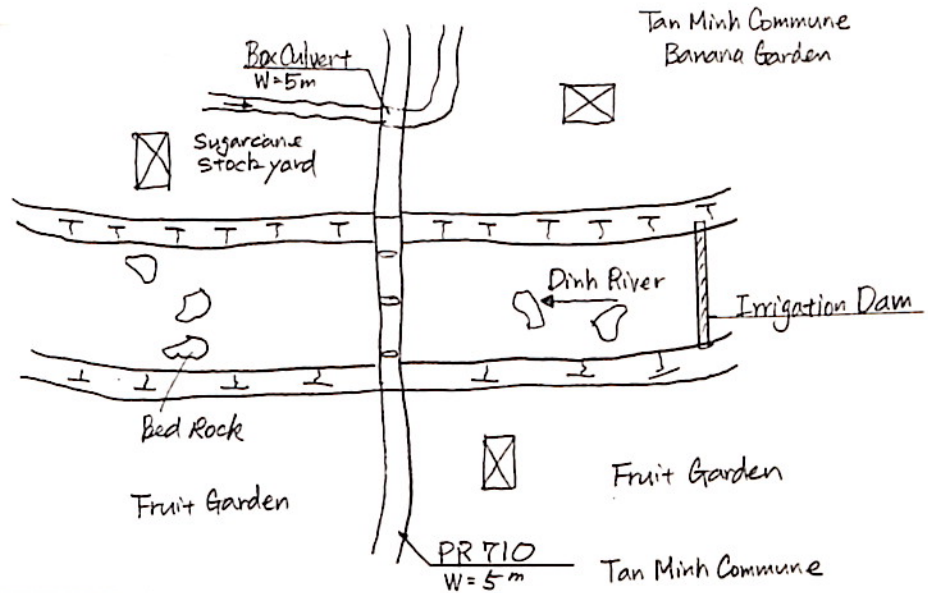 Tan Minh Commune
Banana Garden
Box Culvert
W=5m
Sugarcane
stock yard
Dinh River
Irrigation Dam
Bed Rock
Fruit Garden
Fruit Garden
PR 710
W=5m
Tan Minh Commune